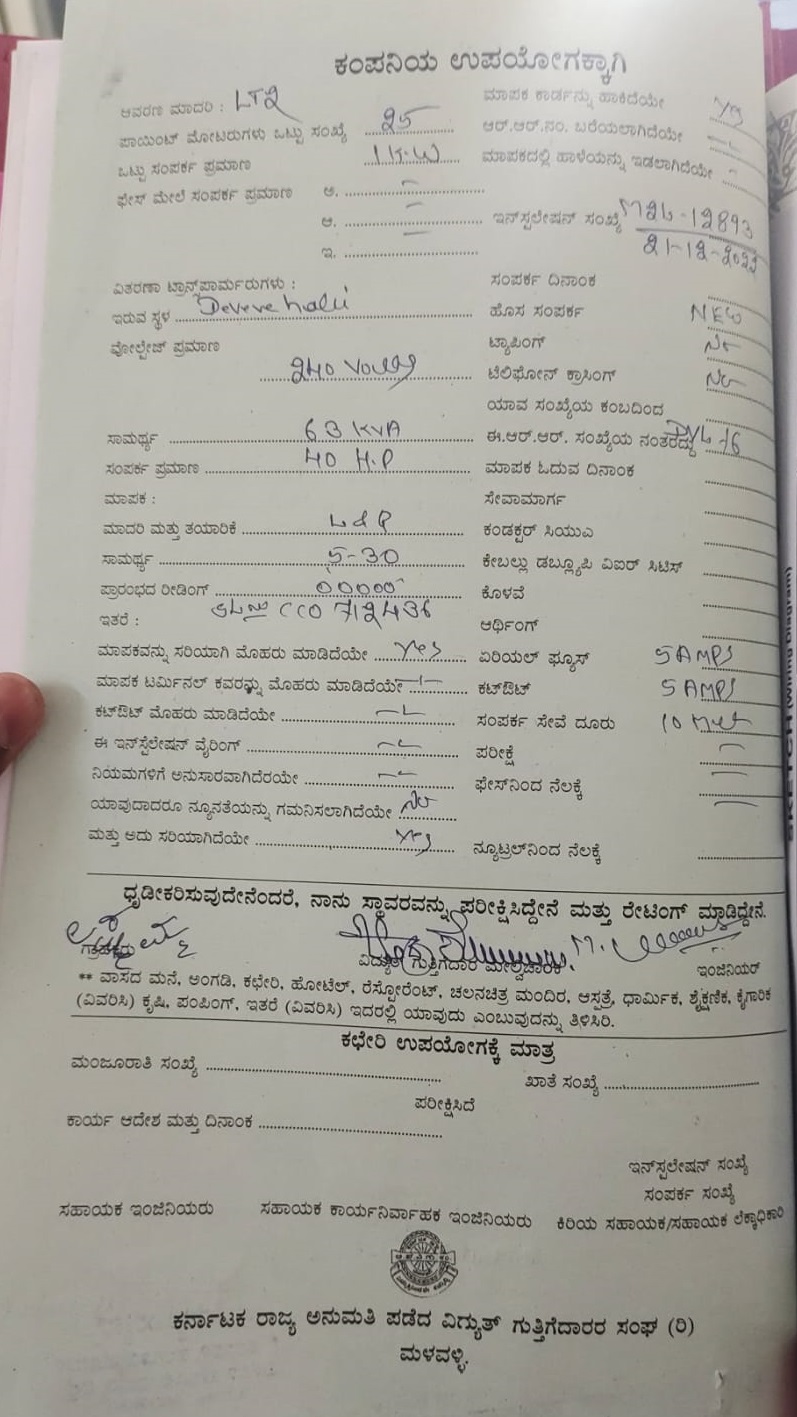 ಕಂಪನಿಯ ಉಪಯೋಗಕ್ಕಾಗಿ
ಆವರಣ ಮಾದರಿ : LT2
ಮಾಪಕ ಕಾರ್ಡನ್ನು ಹಾಕಿದೆಯೇ
ಪಾಯಿಂಟ್ ಮೋಟರುಗಳು ಒಟ್ಟು ಸಂಖ್ಯೆ 25
ಆರ್.ಆರ್.ನಂ. ಬರೆಯಲಾಗಿದೆಯೇ
ಒಟ್ಟು ಸಂಪರ್ಕ ಪ್ರಮಾಣ 1 K.W
ಮಾಪಕದಲ್ಲಿ ಹಾಳೆಯನ್ನು ಇಡಲಾಗಿದೆಯೇ
ಫೇಸ್ ಮೇಲೆ ಸಂಪರ್ಕ ಪ್ರಮಾಣ ಅ.
ಆ.
ಇನ್‌ಸ್ಪಲೇಷನ್ ಸಂಖ್ಯೆ 12893
21-12-2022
ಇ.
ವಿತರಣಾ ಟ್ರಾನ್ಸ್‌ಪಾರ್ಮರುಗಳು :
ಸಂಪರ್ಕ ದಿನಾಂಕ
ಇರುವ ಸ್ಥಳ
ಹೊಸ ಸಂಪರ್ಕ NEW
ವೋಲ್ಟೇಜ್ ಪ್ರಮಾಣ 240 Volts
ಟ್ಯಾಪಿಂಗ್ No
ಟೆಲಿಫೋನ್ ಕ್ರಾಸಿಂಗ್ No
ಯಾವ ಸಂಖ್ಯೆಯ ಕಂಬದಿಂದ
ಸಾಮರ್ಥ್ಯ 63 KVA
ಈ.ಆರ್.ಆರ್. ಸಂಖ್ಯೆಯ ನಂತರದ್ದು
ಸಂಪರ್ಕ ಪ್ರಮಾಣ 40 H.P
ಮಾಪಕ ಓದುವ ದಿನಾಂಕ
ಮಾಪಕ :
ಸೇವಾಮಾರ್ಗ
ಮಾದರಿ ಮತ್ತು ತಯಾರಿಕೆ
ಕಂಡಕ್ಟರ್ ಸಿಯುಎ
ಸಾಮರ್ಥ್ಯ 5-30
ಕೇಬಲ್ಲು ಡಬ್ಲ್ಯೂಪಿ ವಿಐಆರ್ ಸಿಟಿಸ್
ಪ್ರಾರಂಭದ ರೀಡಿಂಗ್ 00000
ಕೊಳವೆ
ಇತರೆ : SL no CCO 712436
ಆರ್ಥಿಂಗ್
ಮಾಪಕವನ್ನು ಸರಿಯಾಗಿ ಮೊಹರು ಮಾಡಿದೆಯೇ Yes
ಏರಿಯಲ್ ಫ್ಯೂಸ್ 5 AMPS
ಮಾಪಕ ಟರ್ಮಿನಲ್ ಕವರನ್ನು ಮೊಹರು ಮಾಡಿದೆಯೇ
ಕಟ್‌ಔಟ್ 5 AMPS
ಕಟ್‌ಔಟ್ ಮೊಹರು ಮಾಡಿದೆಯೇ
ಸಂಪರ್ಕ ಸೇವೆ ದೂರು 10
ಈ ಇನ್‌ಸ್ಪೆಲೇಷನ್ ವೈರಿಂಗ್
ಪರೀಕ್ಷೆ
ನಿಯಮಗಳಿಗೆ ಅನುಸಾರವಾಗಿದೆರಯೇ
ಫೇಸ್‌ನಿಂದ ನೆಲಕ್ಕೆ
ಯಾವುದಾದರೂ ನ್ಯೂನತೆಯನ್ನು ಗಮನಿಸಲಾಗಿದೆಯೇ No
ಮತ್ತು ಅದು ಸರಿಯಾಗಿದೆಯೇ Yes
ನ್ಯೂಟ್ರಲ್‌ನಿಂದ ನೆಲಕ್ಕೆ
ಧೃಡೀಕರಿಸುವುದೇನೆಂದರೆ, ನಾನು ಸ್ಥಾವರವನ್ನು ಪರೀಕ್ಷಿಸಿದ್ದೇನೆ ಮತ್ತು ರೇಟಿಂಗ್ ಮಾಡಿದ್ದೇನೆ.
ವಿದ್ಯುತ್ ಗುತ್ತಿಗೆದಾರ ಮೇಲ್ವಿಚಾರಕ
ಇಂಜಿನಿಯರ್
** ವಾಸದ ಮನೆ, ಅಂಗಡಿ, ಕಛೇರಿ, ಹೋಟೆಲ್, ರೆಸ್ಟೋರೆಂಟ್, ಚಲನಚಿತ್ರ ಮಂದಿರ, ಆಸ್ಪತ್ರೆ, ಧಾರ್ಮಿಕ, ಶೈಕ್ಷಣಿಕ, ಕೈಗಾರಿಕ
(ವಿವರಿಸಿ) ಕೃಷಿ, ಪಂಪಿಂಗ್, ಇತರೆ (ವಿವರಿಸಿ) ಇದರಲ್ಲಿ ಯಾವುದು ಎಂಬುವುದನ್ನು ತಿಳಿಸಿರಿ.
ಕಛೇರಿ ಉಪಯೋಗಕ್ಕೆ ಮಾತ್ರ
ಮಂಜೂರಾತಿ ಸಂಖ್ಯೆ
ಖಾತೆ ಸಂಖ್ಯೆ
ಪರೀಕ್ಷಿಸಿದೆ
ಕಾರ್ಯ ಆದೇಶ ಮತ್ತು ದಿನಾಂಕ
ಇನ್‌ಸ್ಪಲೇಷನ್ ಸಂಖ್ಯೆ
ಸಂಪರ್ಕ ಸಂಖ್ಯೆ
ಸಹಾಯಕ ಇಂಜಿನಿಯರು
ಸಹಾಯಕ ಕಾರ್ಯನಿರ್ವಾಹಕ ಇಂಜಿನಿಯರು
ಕಿರಿಯ ಸಹಾಯಕ/ಸಹಾಯಕ ಲೆಕ್ಕಾಧಿಕಾರಿ
ಕರ್ನಾಟಕ ರಾಜ್ಯ ಅನುಮತಿ ಪಡೆದ ವಿದ್ಯುತ್ ಗುತ್ತಿಗೆದಾರರ ಸಂಘ (ರಿ)
ಮಳವಳ್ಳಿ.
SKETCH (Wiring Diagram)